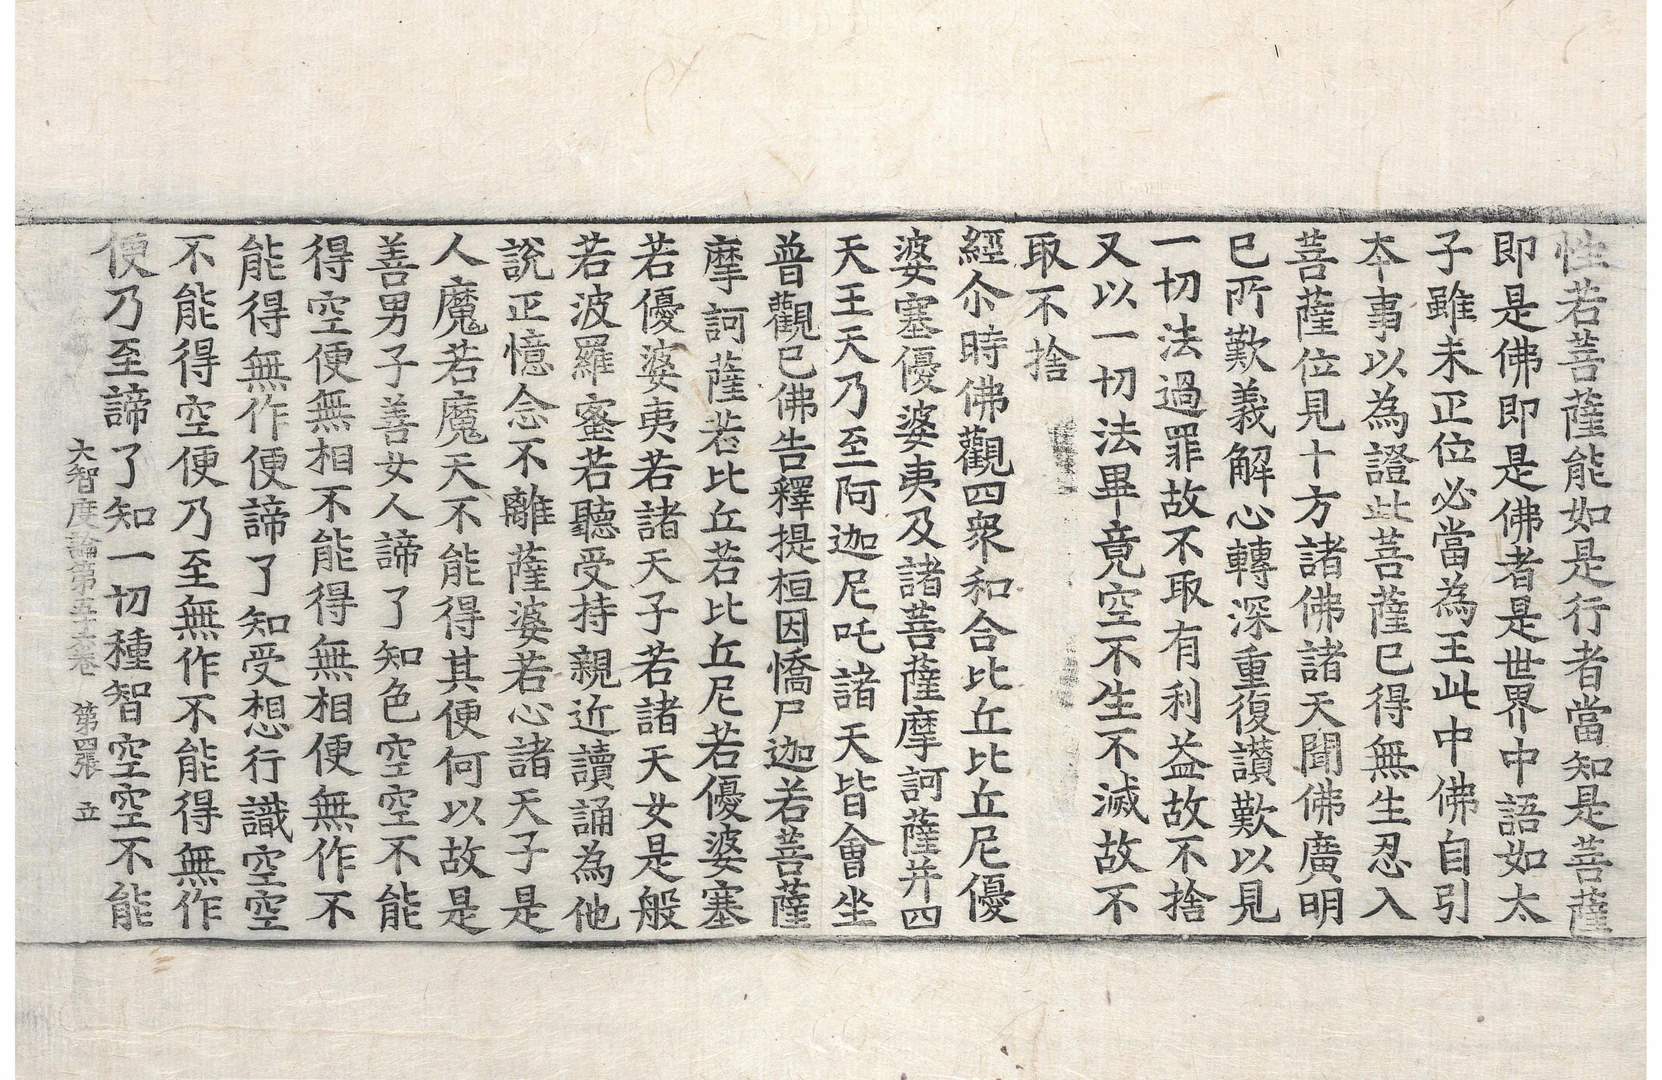 性若菩薩能如是行者當知是菩薩
即是佛即是佛者是世界中語如太
子雖未正位必當為王此中佛自引
本事以為證此菩薩已得無生忍入
菩薩位見十方諸佛諸天聞佛廣明
已所歎義解心轉深重復讃歎以見
一切法過罪故不取有利益故不捨
又以一切法畢竟空不生不滅故不
取不捨
經尒時佛觀四衆和合比丘比丘尼優
婆塞優婆夷及諸菩薩摩訶薩并四
天王天乃至阿迦尼吒諸天皆會坐
普觀已佛告釋提桓因憍尸迦若菩薩
摩訶薩若比丘若比丘尼若優婆塞
若優婆夷若諸天子若諸天女是般
若波羅蜜若聽受持親近讀誦為他
說正憶念不離薩婆若心諸天子是
人魔若魔天不能得其便何以故是
善男子善女人諦了知色空空不能
得空便無相不能得無相便無作不
能得無作便諦了知受想行識空空
不能得空便乃至無作不能得無作
便乃至諦了知一切種智空空不能
大智度論第五十六卷 第四張 立